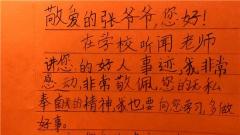 敬爱的张爷爷,您好!
在学校听闻老师
讲您的好人事迹,我非常
感动,非常敬佩您的无私
奉献的精神,我也要向您学习,多做
好事。